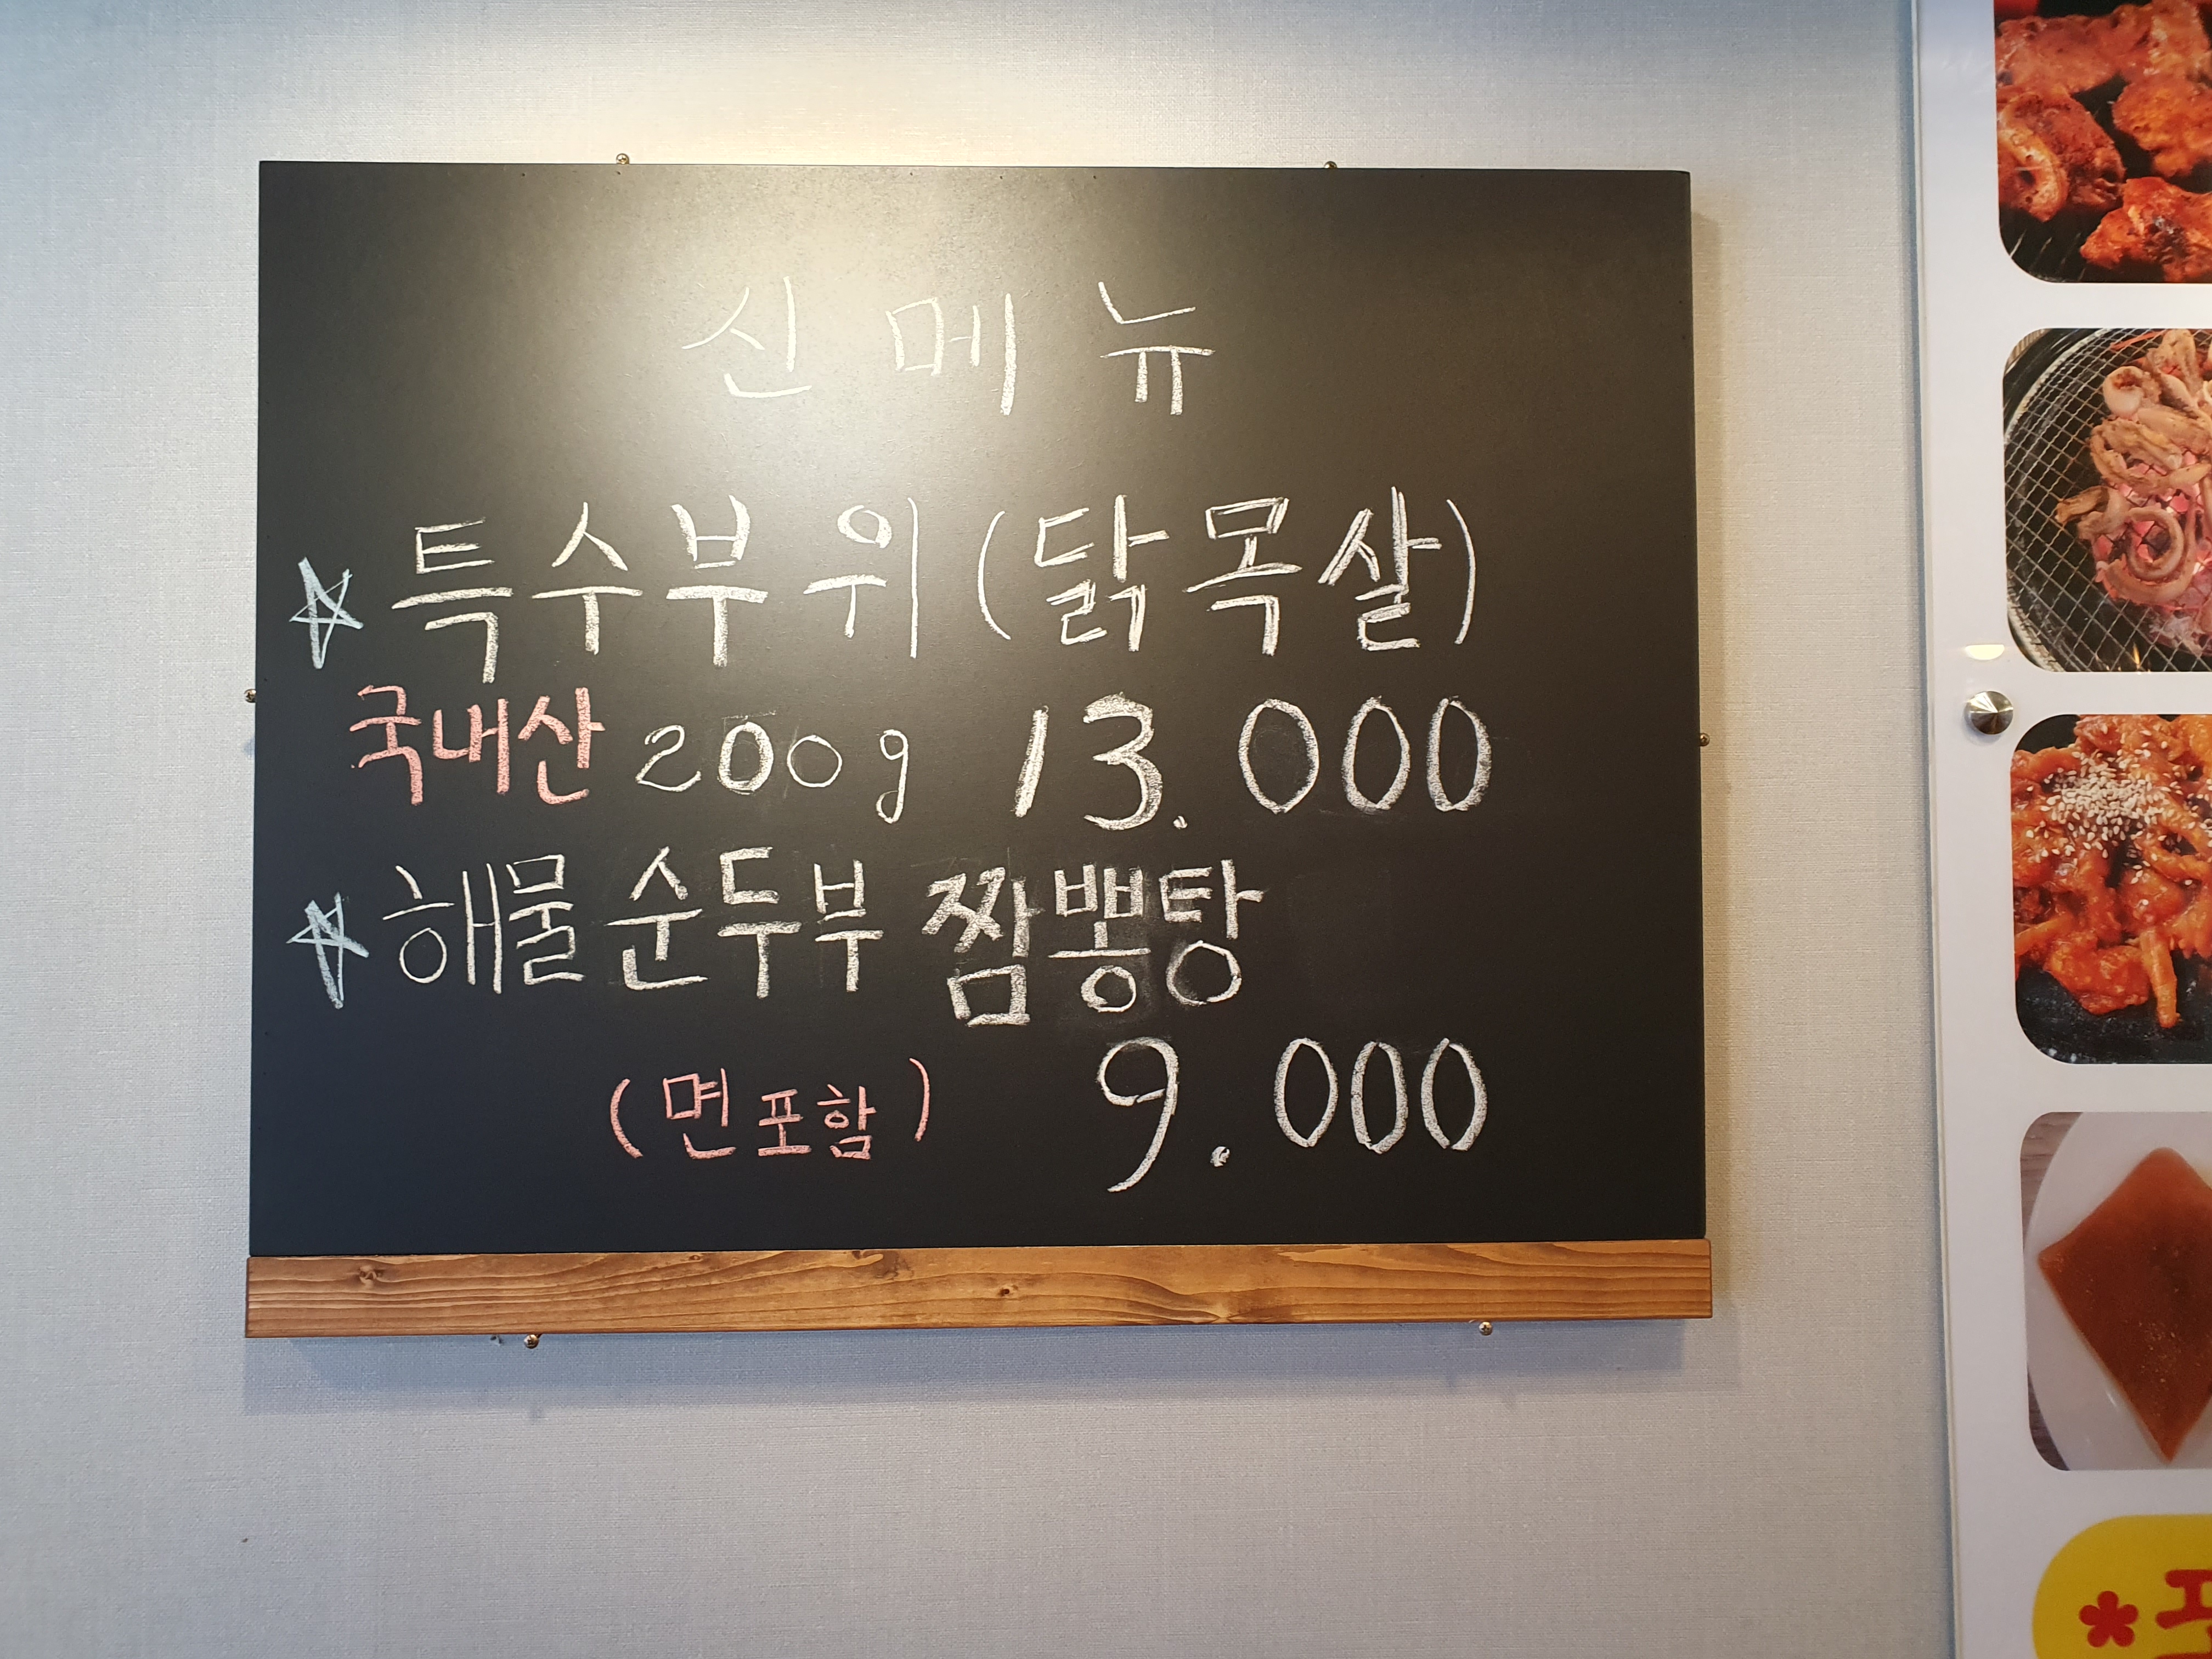 신메뉴
☆ 특수부위 (닭목살)
국내산 200g 13.000
☆ 해물 순두부 짬뽕탕
(면포함) 9.000